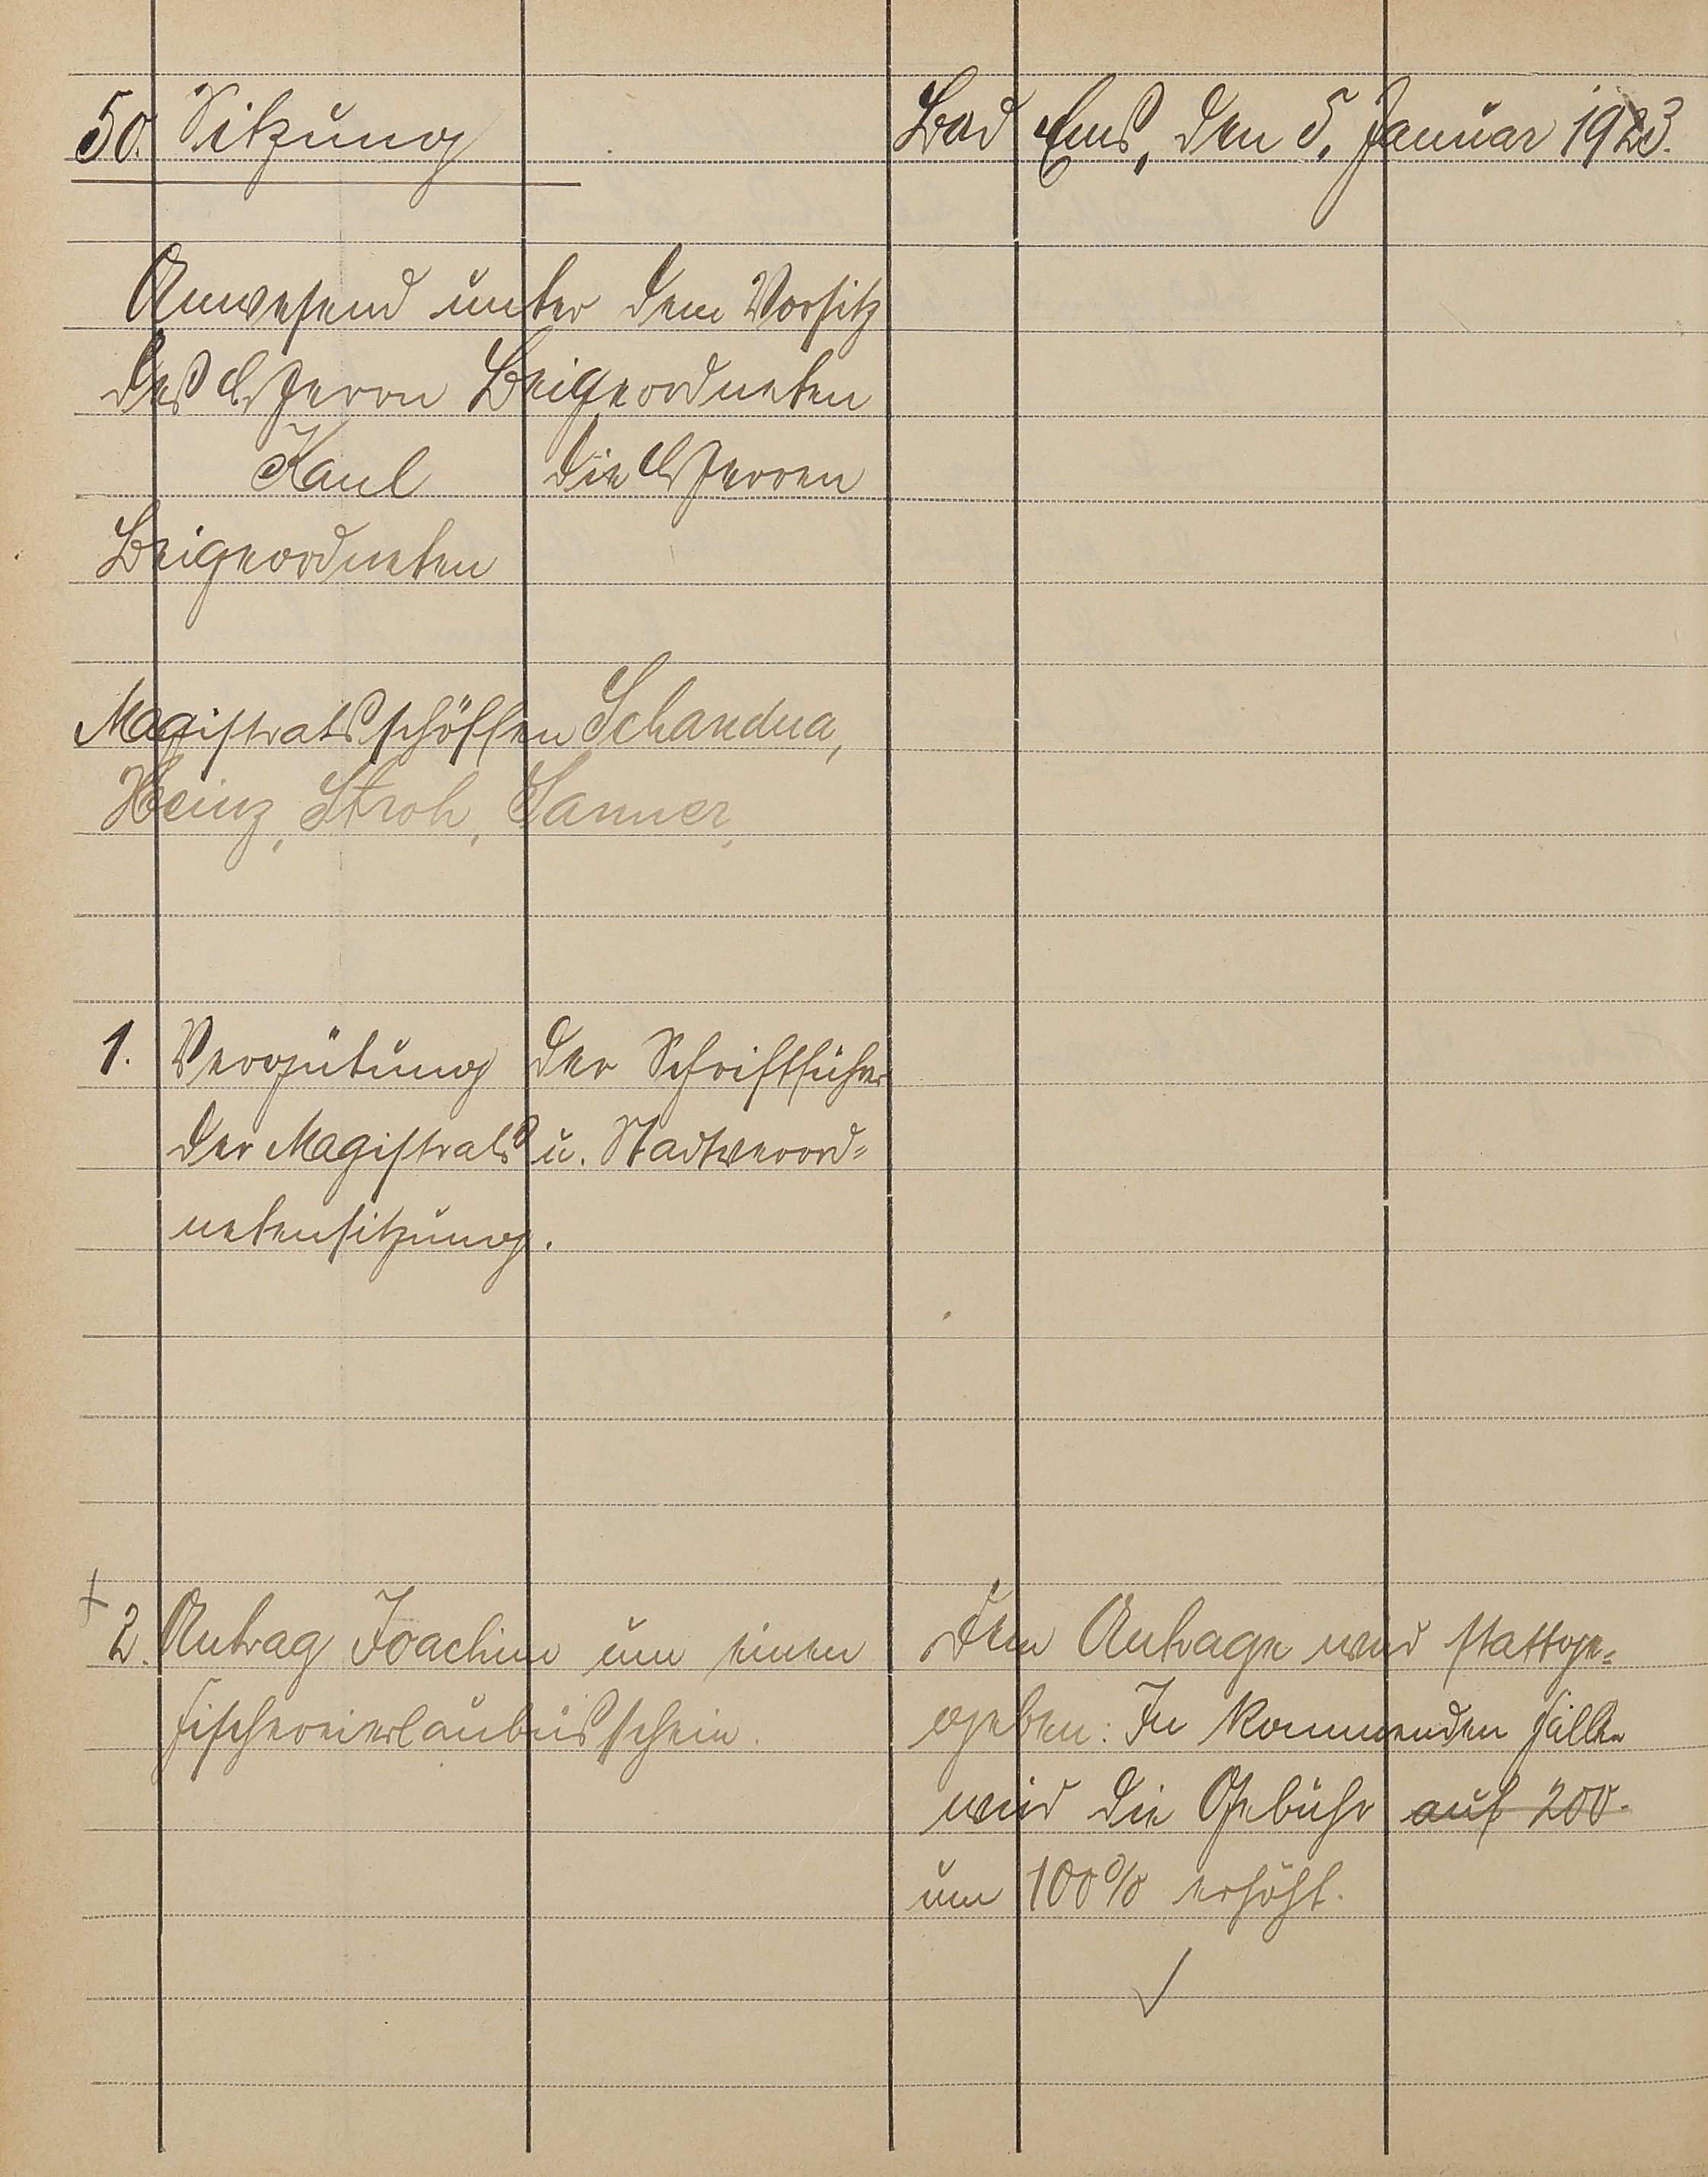 50. Sitzung
Bad Ems, den 5. Januar 1923.
Anwesend unter dem Vorsitz
des Herrn Beigeordneten
Kaul die Herren
Beigeordneten
Magistratsschöffen Schandua,
Heinz, Stroh, Sanner,
1. Vergütung der Schriftführer
der Magistrats u. Stadtverord=
netensitzung.
2. Antrag Joachim um einen
Fischereierlaubnisschein.
Dem Antrage wird stattge=
geben: In kommenden Fällen
wird die Gebühr auf 200.
um 100% erhöht.